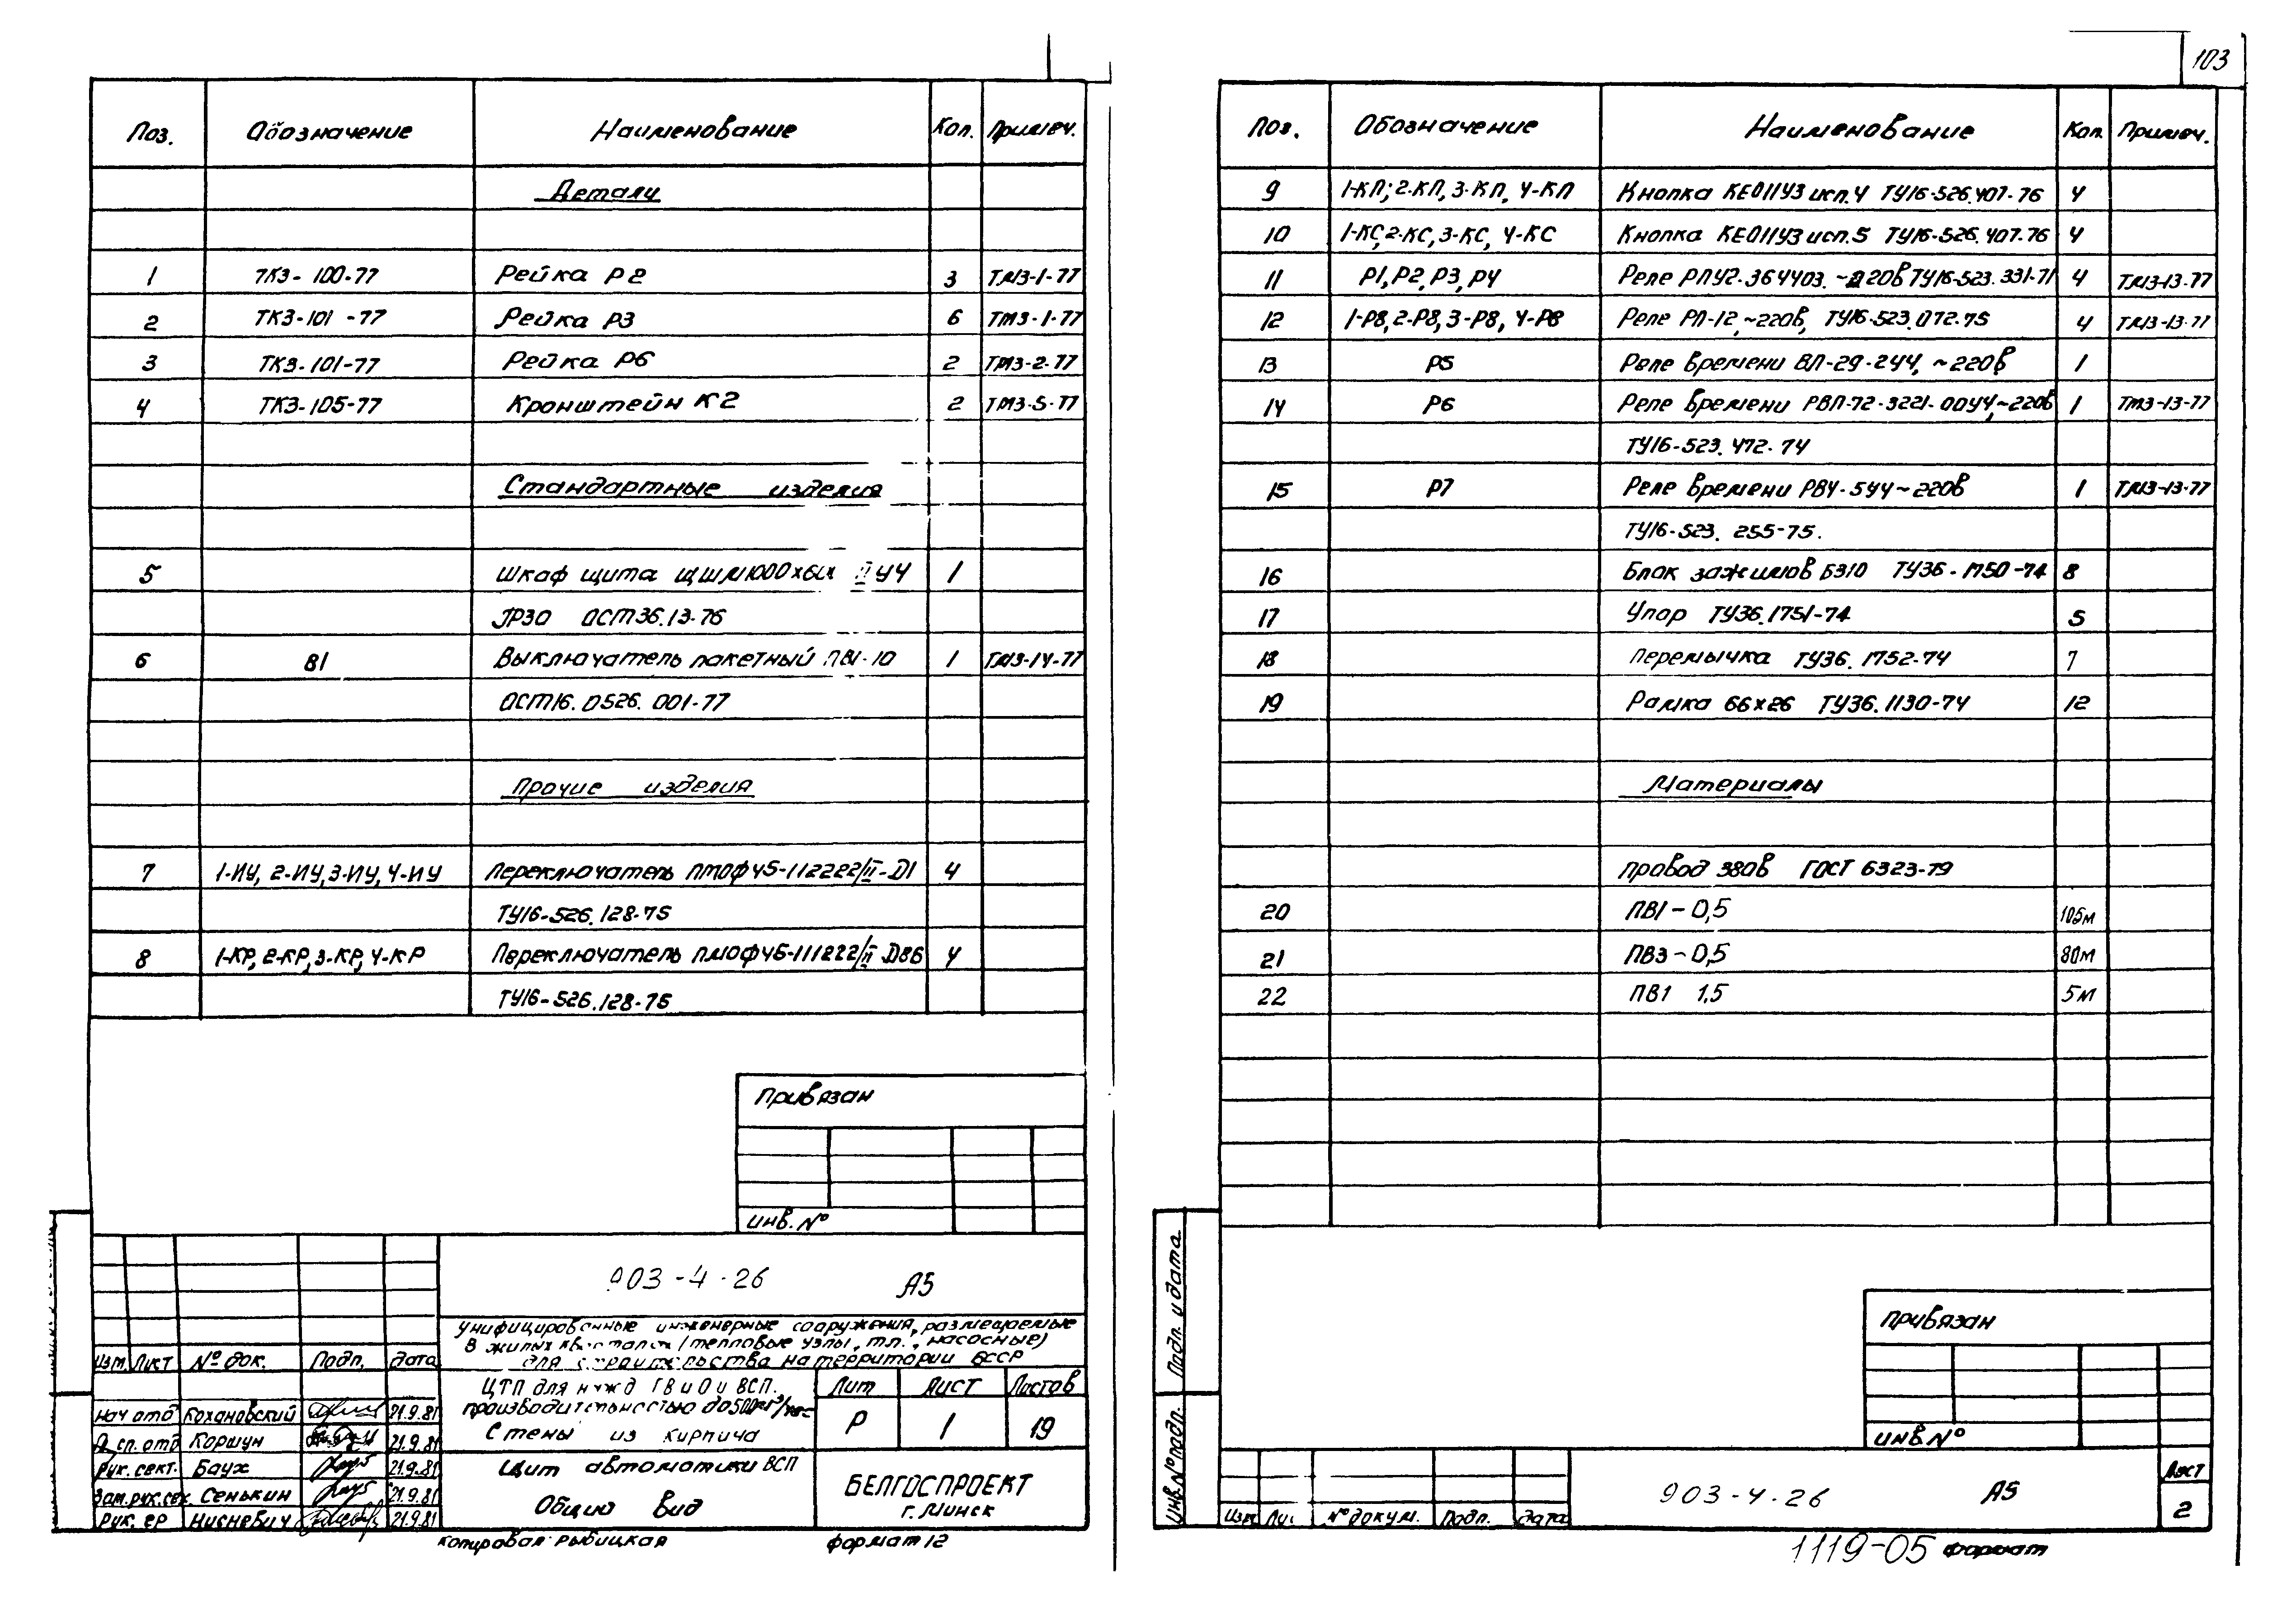 103
Поз. Обозначение Наименование Кол. Примеч.
Детали
1 ТКЗ-100-77 Рейка Р2 3 ТМЗ-1-77
2 ТКЗ-101-77 Рейка Р3 6 ТМЗ-1-77
3 ТКЗ-101-77 Рейка Р6 2 ТМЗ-2-77
4 ТКЗ-105-77 Кронштейн К2 2 ТМЗ-5-77
Стандартные изделия
5 Шкаф щита ЩШМ1000х60 УЧ 1
JРЗО ОСТ36.13-76
6 В1 Выключатель пакетный ПВ1-10 1 ТМЗ-14-77
ОСТ16.0526.001-77
Прочие изделия
7 1-ИУ, 2-ИУ, 3-ИУ, 4-ИУ Переключатель ПМОФ45-112222/II-D1 4
ТУ16-526.128-75
8 1-КР, 2-КР, 3-КР, 4-КР Переключатель ПМОФ45-111222/II-D86 4
ТУ16-526.128-75
Привязан
инв. №
903-4-26 А5
Унифицированные инженерные сооружения, размещаемые
в жилых кварталах (тепловые узлы, т.п., насосные)
для строительства на территории БССР
Изм. Лист № док. Подп. Дата
ЦТП для нужд ГВ и О и ВСП.
производительностью до 500 м³/час
Стены из кирпича
Лит Лист Листов
Р 1 19
нач отд Кохановский 21.9.81
Гл. сп. отд Коршун 21.9.81
Рук. сект. Баух 21.9.81
Зам. рук. сек. Сенькин 21.9.81
Рук. гр Нисневич 21.9.81
Щит автоматики ВСП
Общий вид
БЕЛГОСПРОЕКТ
г. Минск
Копировал: Рыбицкая формат 12
Поз. Обозначение Наименование Кол. Примеч.
9 1-КП; 2-КП, 3-КП, 4-КП Кнопка КЕ011У3 исп.4 ТУ16-526.407-76 4
10 1-КС, 2-КС, 3-КС, 4-КС Кнопка КЕ011У3 исп.5 ТУ16-526.407-76 4
11 Р1, Р2, Р3, Р4 Реле РПУ2-364403. ~220в ТУ16-523.331-71 4 ТМЗ-13-77
12 1-Р8, 2-Р8, 3-Р8, 4-Р8 Реле РП-12, ~220в, ТУ16-523.072-75 4 ТМЗ-13-77
13 Р5 Реле времени ВЛ-29-244, ~220в 1
14 Р6 Реле времени РВП-72-3221-00У4, ~220в 1 ТМЗ-13-77
ТУ16-523.472-74
15 Р7 Реле времени РВ4-5У4 ~220в 1 ТМЗ-13-77
ТУ16-523.255-75.
16 Блок зажимов БЗ10 ТУ36-1750-74 8
17 Упор ТУ36.1751-74 5
18 Перемычка ТУ36.1752-74 7
19 Рамка 66х26 ТУ36.1130-74 12
Материалы
Провод 380в ГОСТ 6323-79
20 ПВ1-0,5 105м
21 ПВ3-0,5 80м
22 ПВ1 1,5 5м
Привязан
инв №
Подп. и дата
Инв. № подп.
Изм № докум. Подп. Дата
903-4-26 А5
Лист
2
1119-05 формат